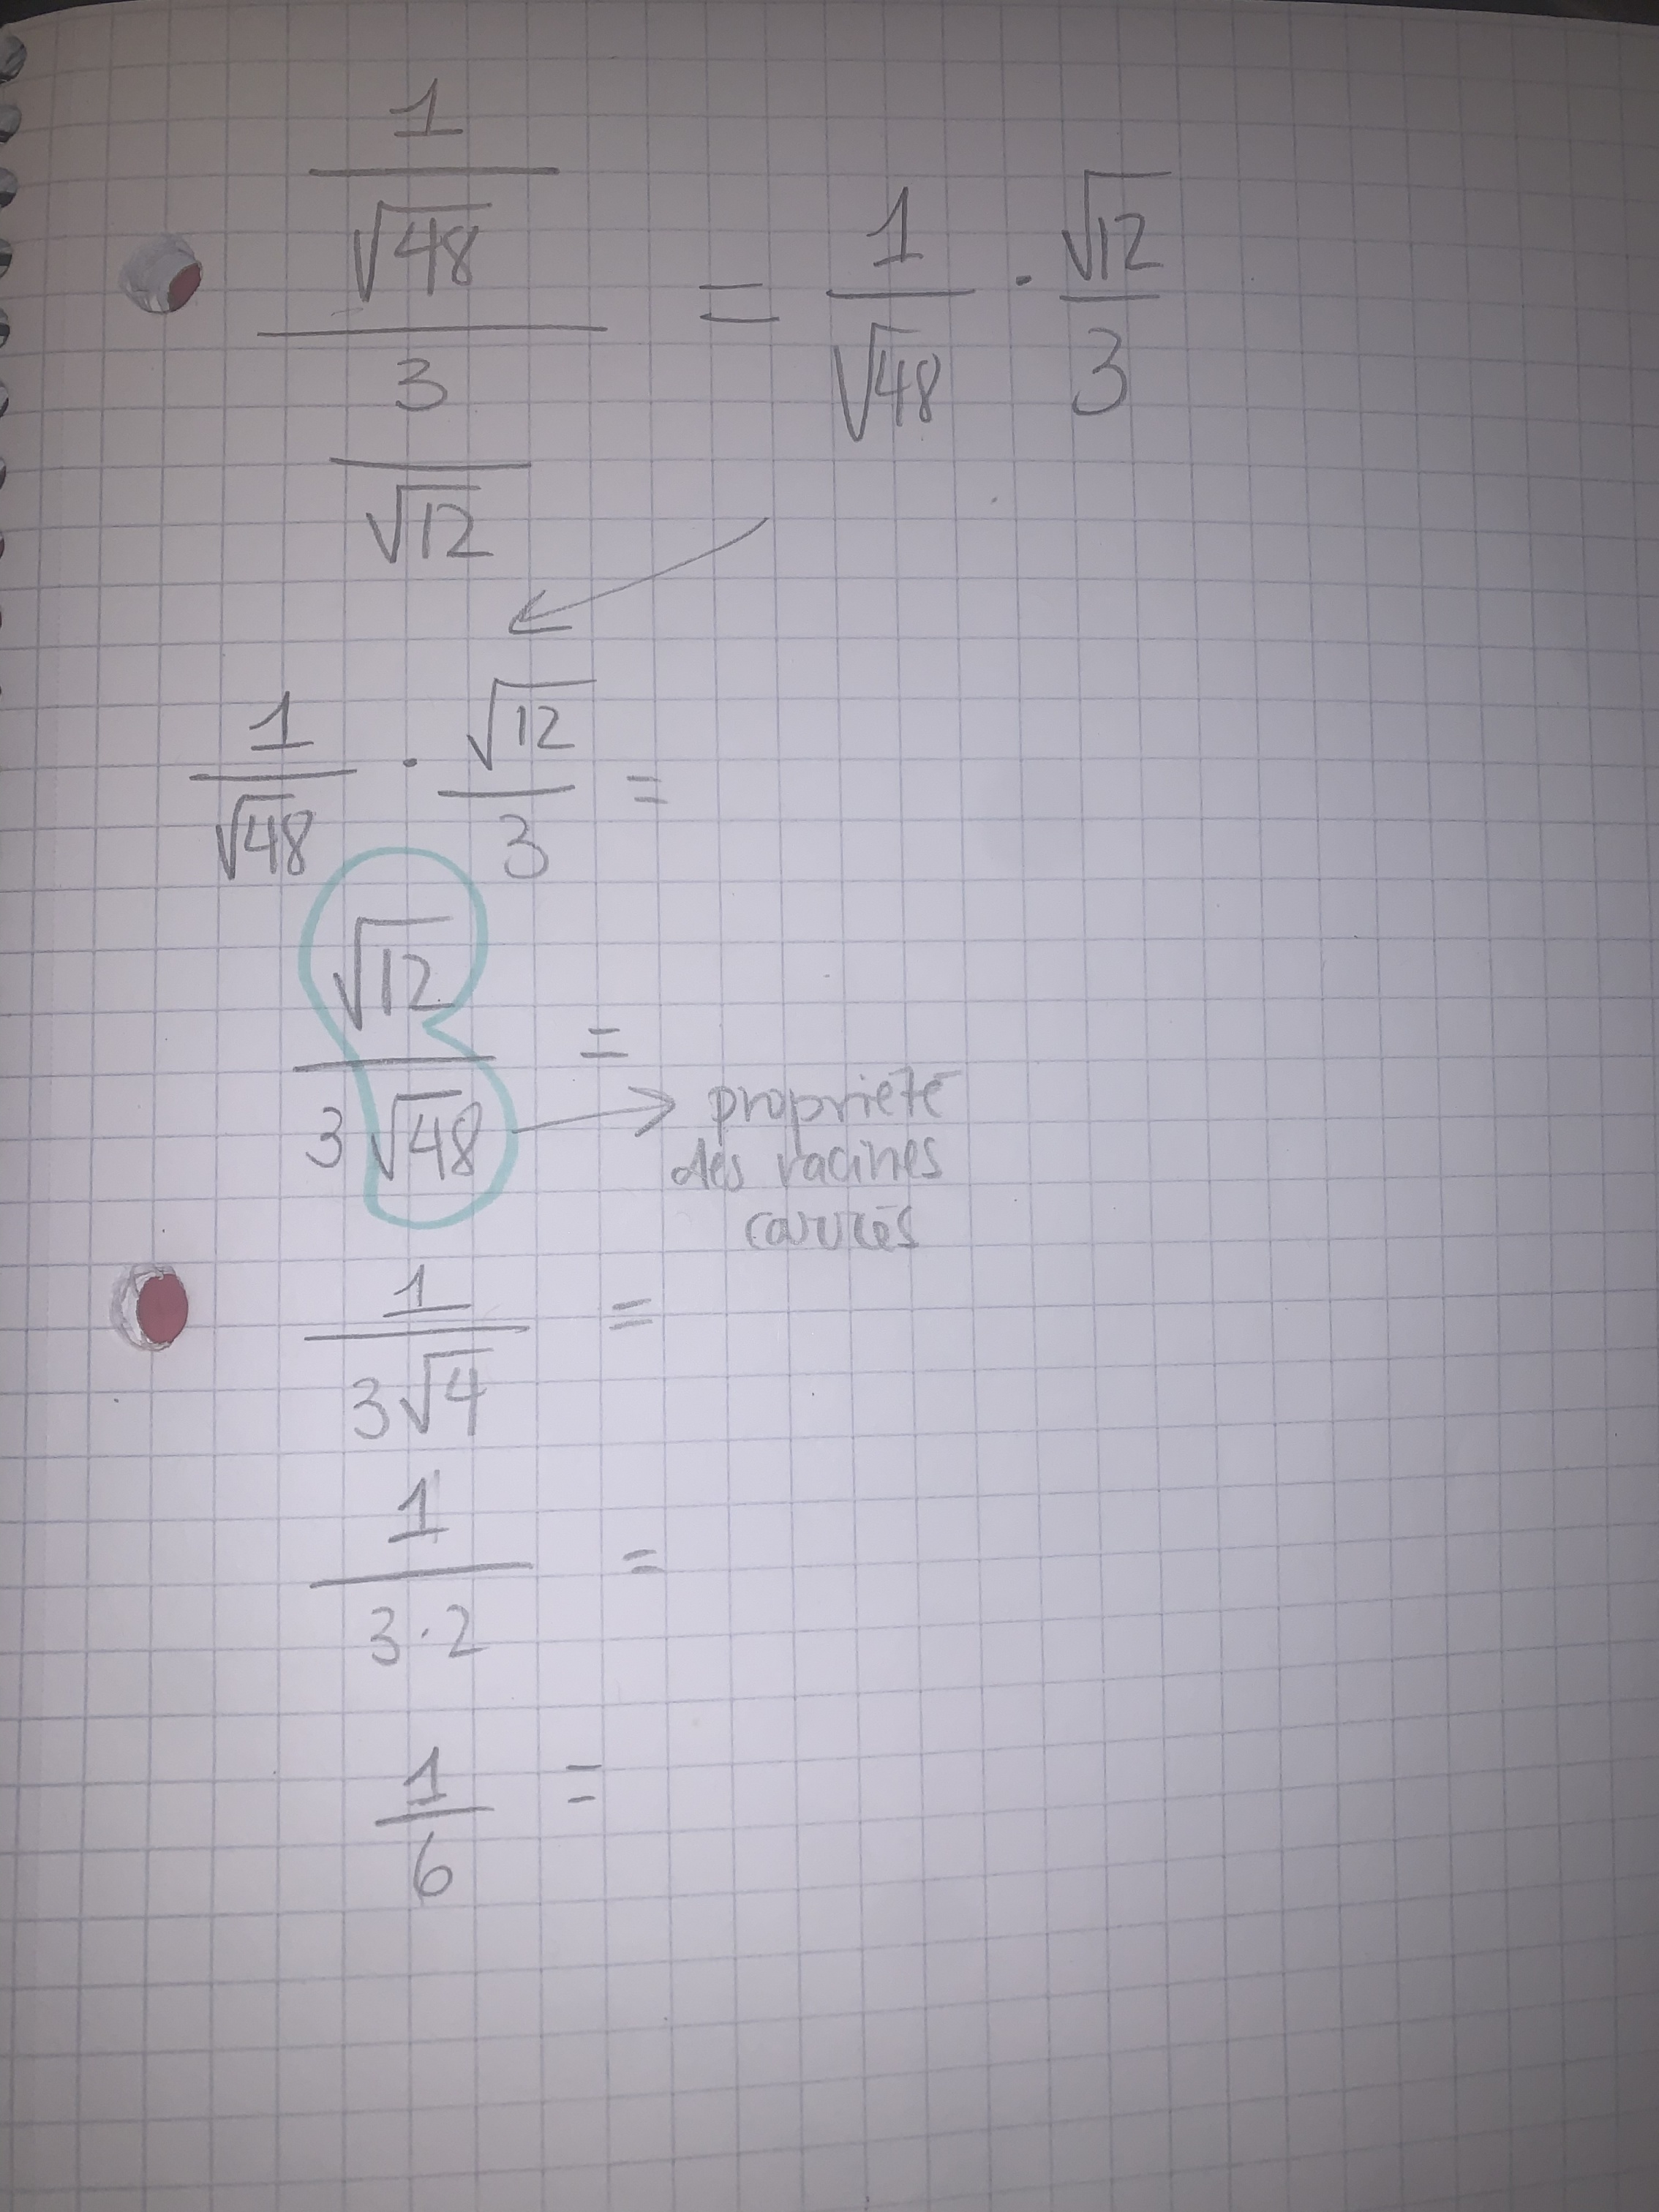 1/√48 / 3/√12 = 1/√48 · √12/3
1/√48 · √12/3 =
√12 / 3√48 =
proprieté
des racines
carrés
1 / 3√4 =
1 / 3·2 =
1/6 =